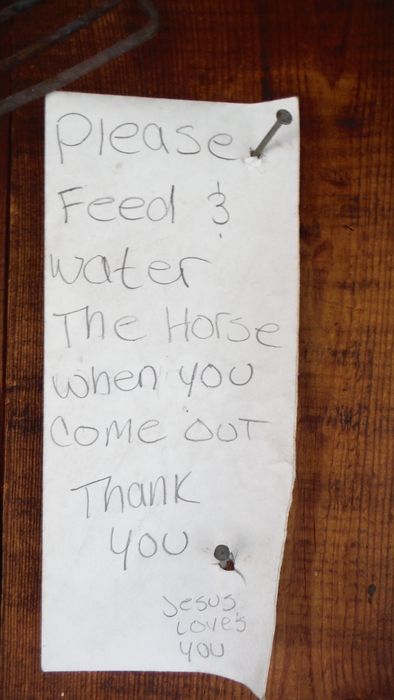 Please
Feed &
water
The Horse
when you
come out
Thank
you
Jesus
Loves
you